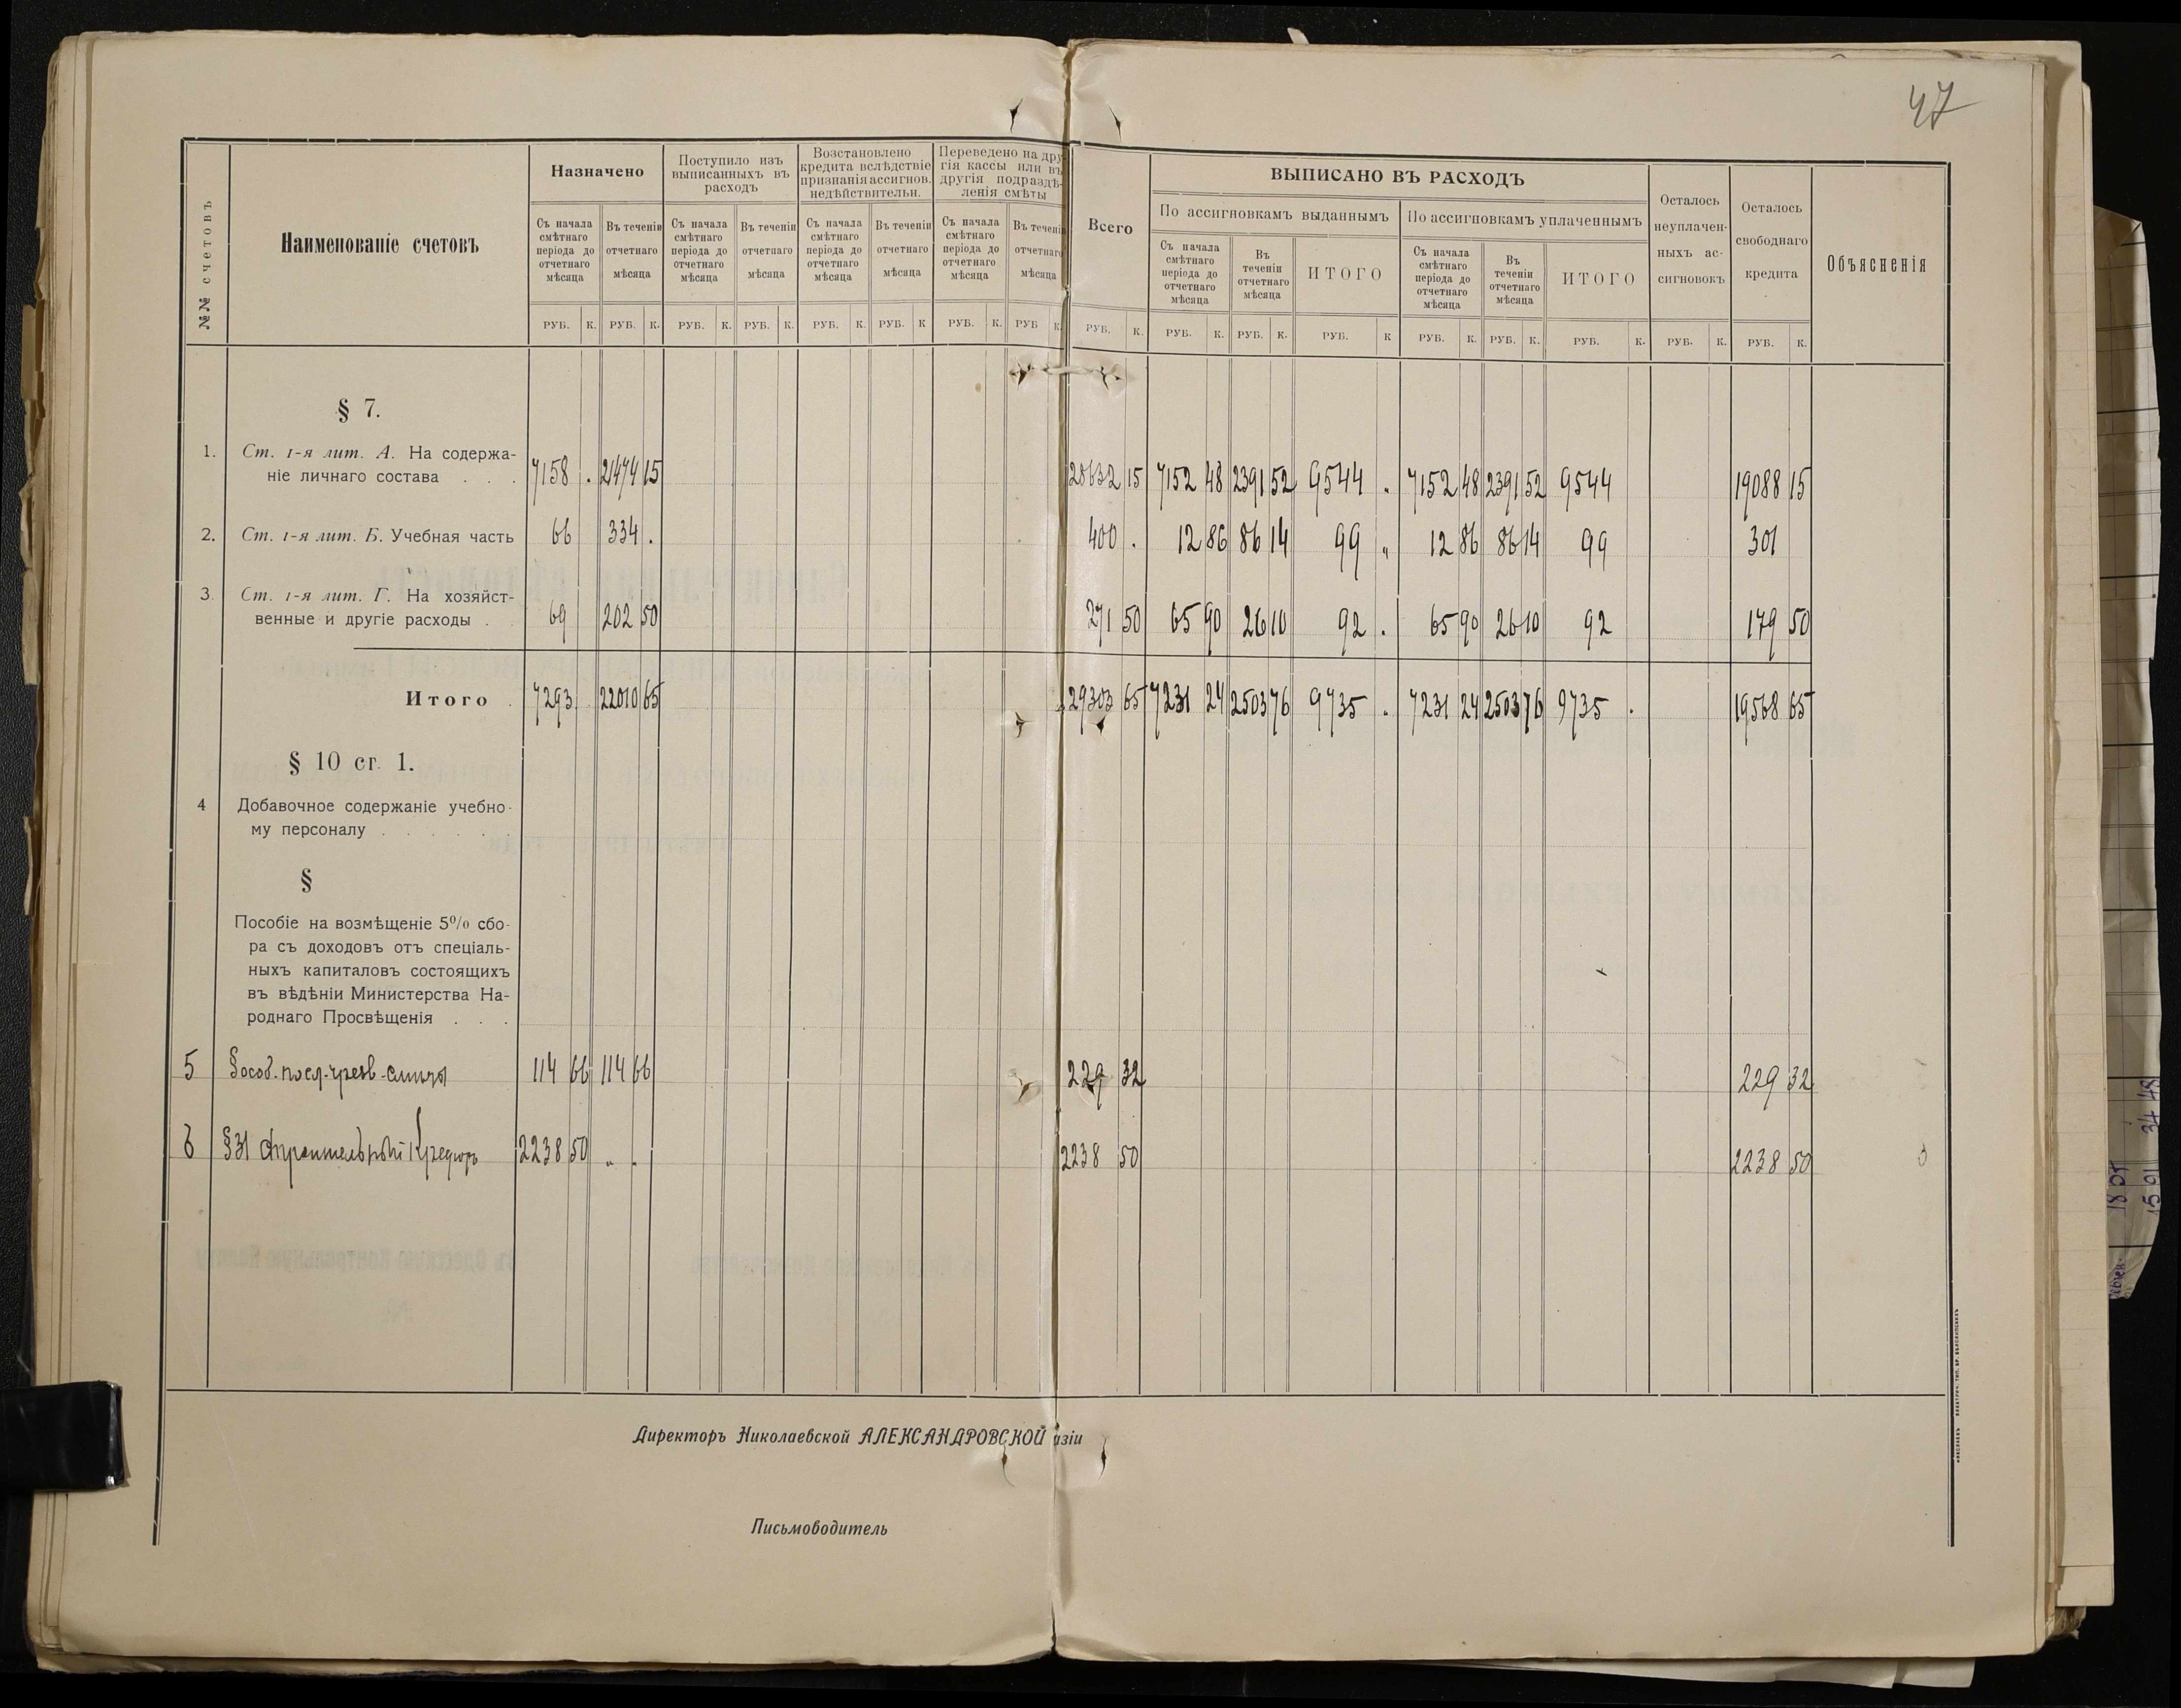 47
№№ счетовъ
Наименованіе счетовъ
Назначено
Поступило изъ
выписанныхъ въ
расходъ
Возстановлено
кредита вслѣдствіе
признанія ассигнов.
недѣйствительн.
Переведено на дру-
гія кассы или въ
другія подраздѣ-
ленія смѣты
Всего
ВЫПИСАНО ВЪ РАСХОДЪ
По ассигновкамъ выданнымъ
По ассигновкамъ уплаченнымъ
Осталось
неуплачен-
ныхъ ас-
сигновокъ
Осталось
свободнаго
кредита
Объясненія
Съ начала
смѣтнаго
періода до
отчетнаго
мѣсяца
Въ теченіи
отчетнаго
мѣсяца
Съ начала
смѣтнаго
періода до
отчетнаго
мѣсяца
Въ теченіи
отчетнаго
мѣсяца
Съ начала
смѣтнаго
періода до
отчетнаго
мѣсяца
Въ теченіи
отчетнаго
мѣсяца
Съ начала
смѣтнаго
періода до
отчетнаго
мѣсяца
Въ теченіи
отчетнаго
мѣсяца
Съ начала
смѣтнаго
періода до
отчетнаго
мѣсяца
Въ
теченіи
отчетнаго
мѣсяца
ИТОГО
Съ начала
смѣтнаго
періода до
отчетнаго
мѣсяца
Въ
теченіи
отчетнаго
мѣсяца
ИТОГО
РУБ. К. РУБ. К. РУБ. К. РУБ. К. РУБ. К. РУБ. К РУБ. К. РУБ К. РУБ. К. РУБ. К. РУБ. К. РУБ. К РУБ. К. РУБ. К. РУБ. К. РУБ. К. РУБ. К.
§ 7.
1. Ст. 1-я лит. А. На содержа-
ніе личнаго состава . . . 7158 . 21474 15 28632 15 7152 48 2391 52 9544 . 7152 48 2391 52 9544 19088 15
2. Ст. 1-я лит. Б. Учебная часть 66 334 . 400 . 12 86 86 14 99 „ 12 86 86 14 99 301
3. Ст. 1-я лит. Г. На хозяйст-
венные и другіе расходы . 69 202 50 271 50 65 90 26 10 92 . 65 90 26 10 92 179 50
Итого . 7293 22010 65 29303 65 7231 24 2503 76 9735 . 7231 24 2503 76 9735 . 19568 65
§ 10 ст. 1.
4 Добавочное содержаніе учебно-
му персоналу . . . . . .
§
Пособіе на возмѣщеніе 5% сбо-
ра съ доходовъ отъ спеціаль-
ныхъ капиталовъ состоящихъ
въ вѣдѣніи Министерства На-
роднаго Просвѣщенія . . .
5 § 114 66 114 66 229 32 229 32
6 §31 Строительный Кредитъ 2238 50 „ . 2238 50 2238 50
Директоръ Николаевской АЛЕКСАНДРОВСКОЙ азіи
Письмоводитель